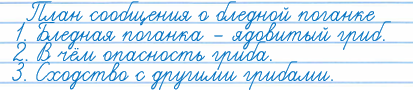 План сообщения о бледной поганке
1. Бледная поганка – ядовитый гриб.
2. В чём опасность гриба.
3. Сходство с другими грибами.